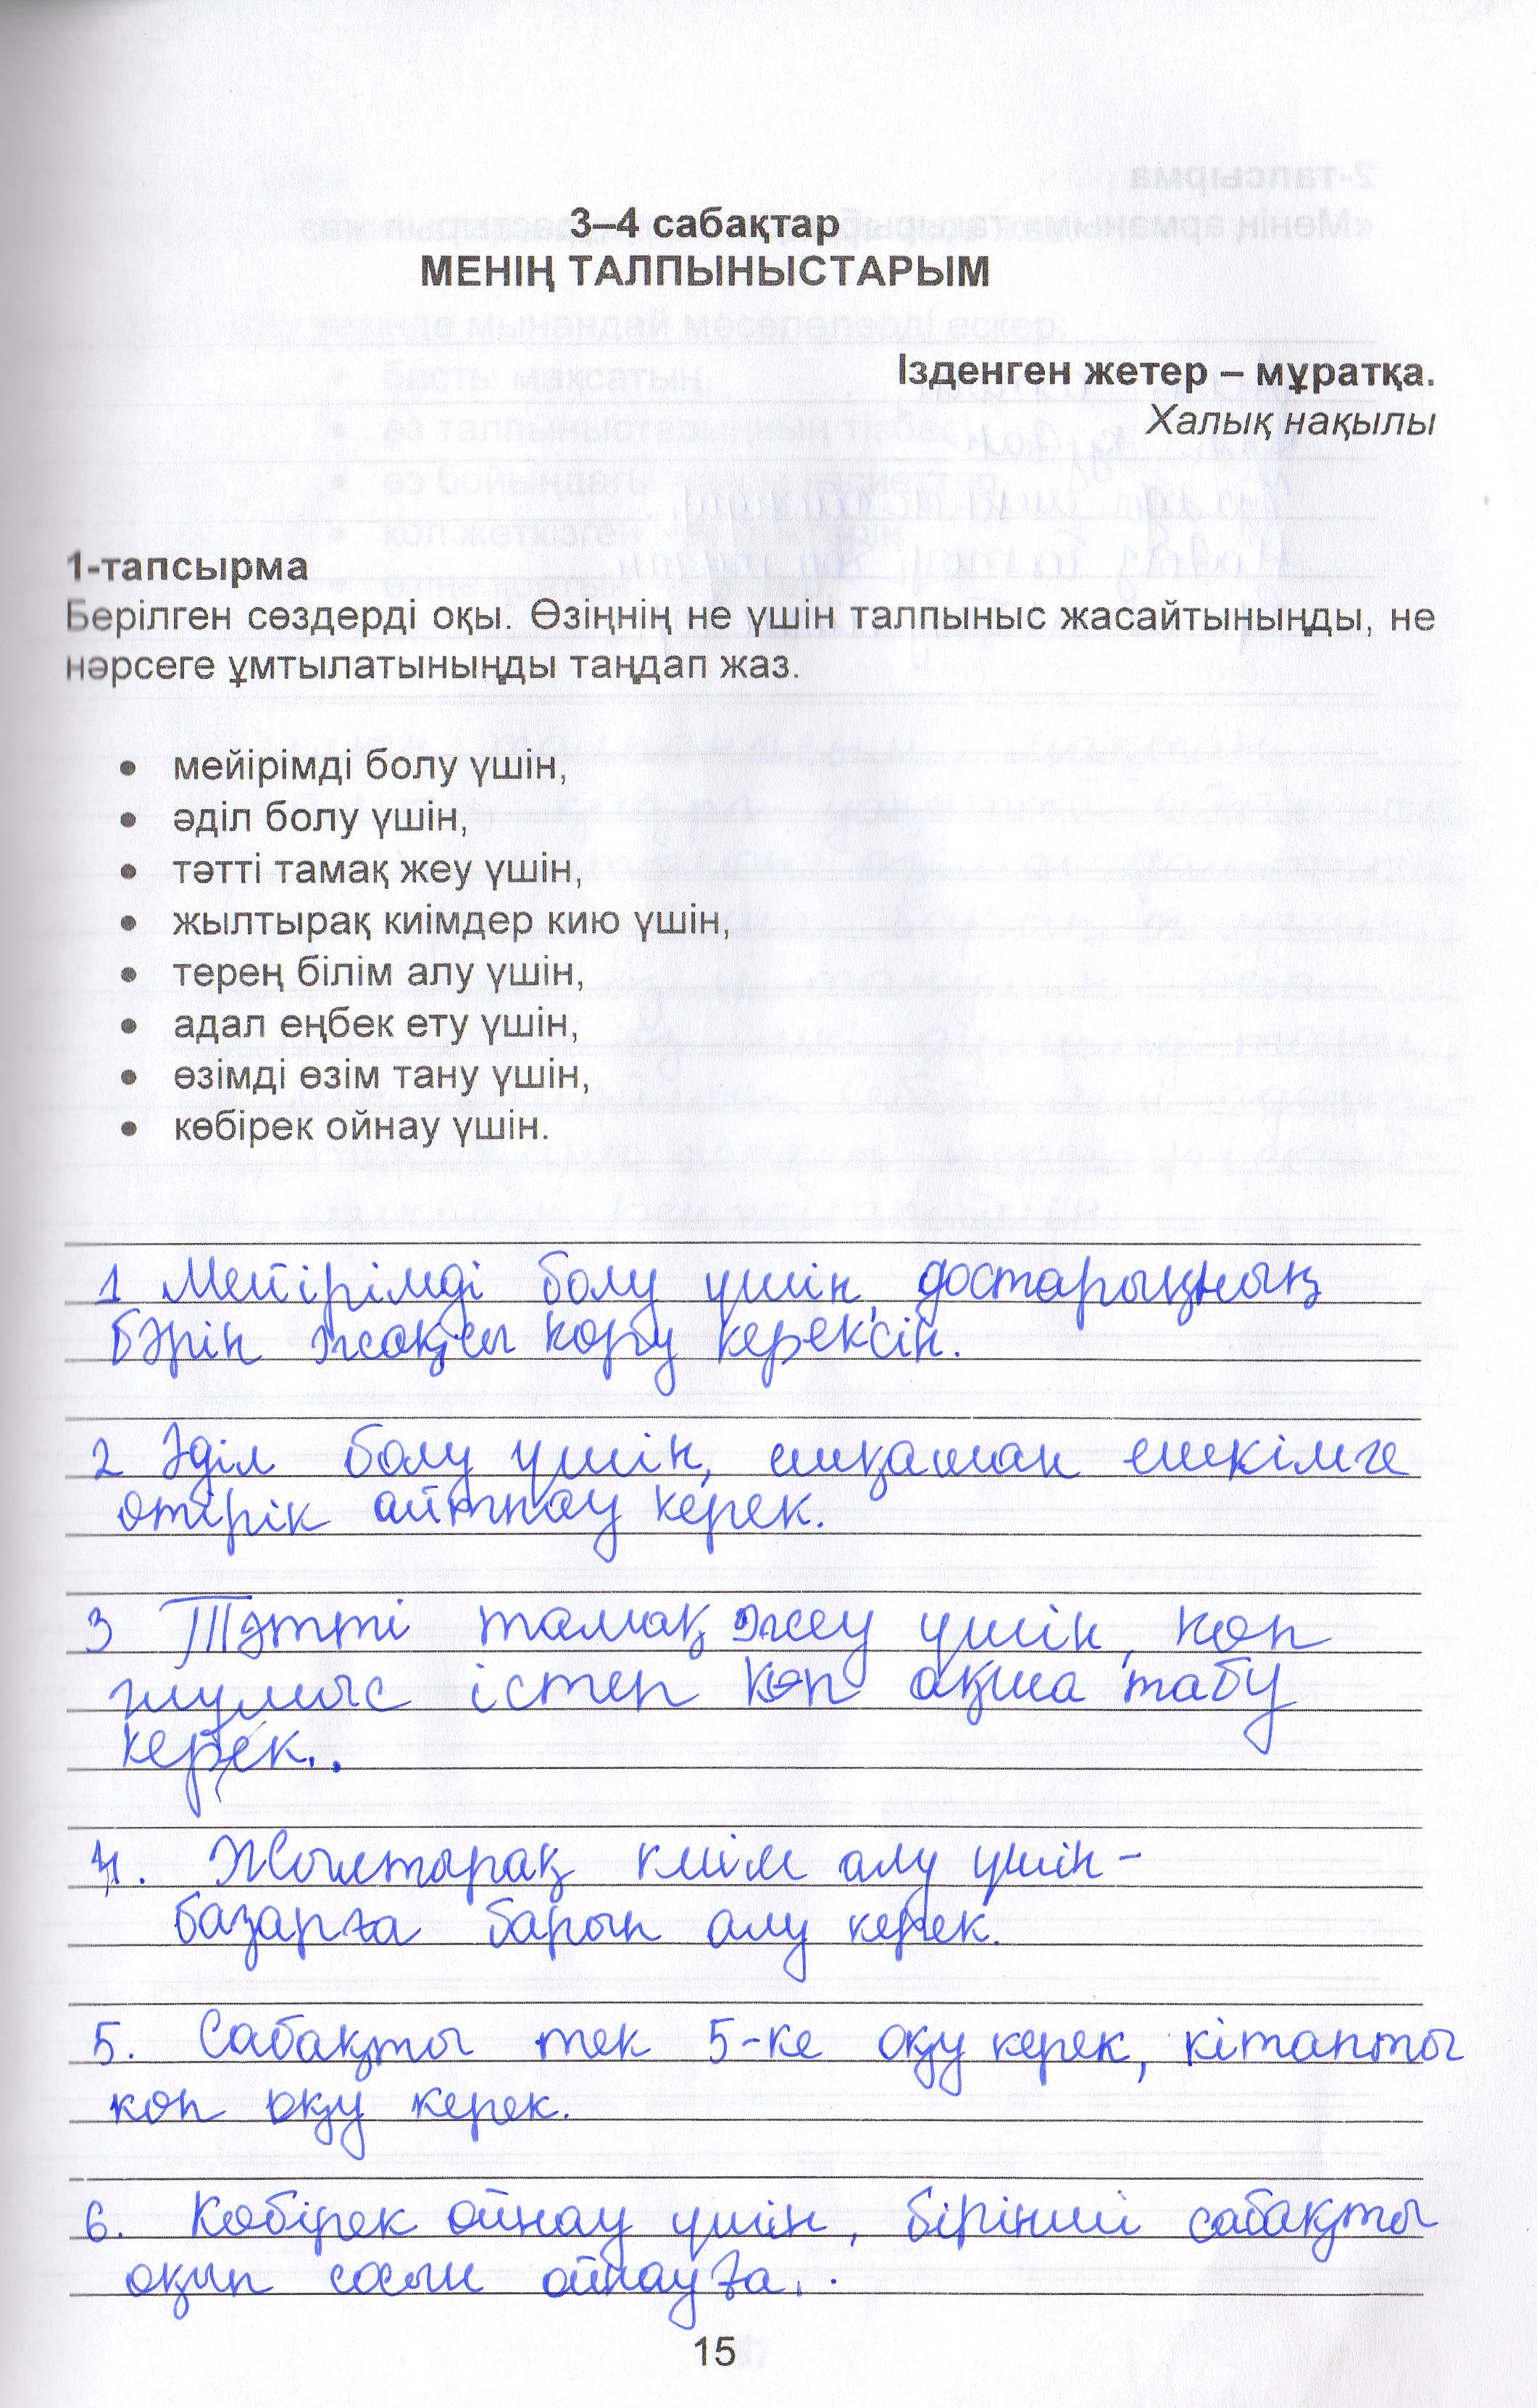 3–4 сабақтар
МЕНІҢ ТАЛПЫНЫСТАРЫМ
Ізденген жетер – мұратқа.
Халық нақылы
1-тапсырма
Берілген сөздерді оқы. Өзіңнің не үшін талпыныс жасайтыныңды, не
нәрсеге ұмтылатыныңды таңдап жаз.
• мейірімді болу үшін,
• әділ болу үшін,
• тәтті тамақ жеу үшін,
• жылтырақ киімдер кию үшін,
• терең білім алу үшін,
• адал еңбек ету үшін,
• өзімді өзім тану үшін,
• көбірек ойнау үшін.
1 Мейірімді болу үшін, достарыңның
бәрін жақсы көру керексің.
2 Әділ болу үшін, ешқашан ешкімге
өтірік айтпау керек.
3 Тәтті тамақ жеу үшін, көп
жұмыс істеп көп ақша табу
керек..
4. Жылтырақ киім алу үшін -
базарға барып алу керек.
5. Сабақты тек 5-ке оқу керек, кітапты
көп оқу керек.
6. Көбірек ойнау үшін, бірінші сабақты
оқып сосын ойнауға..
15